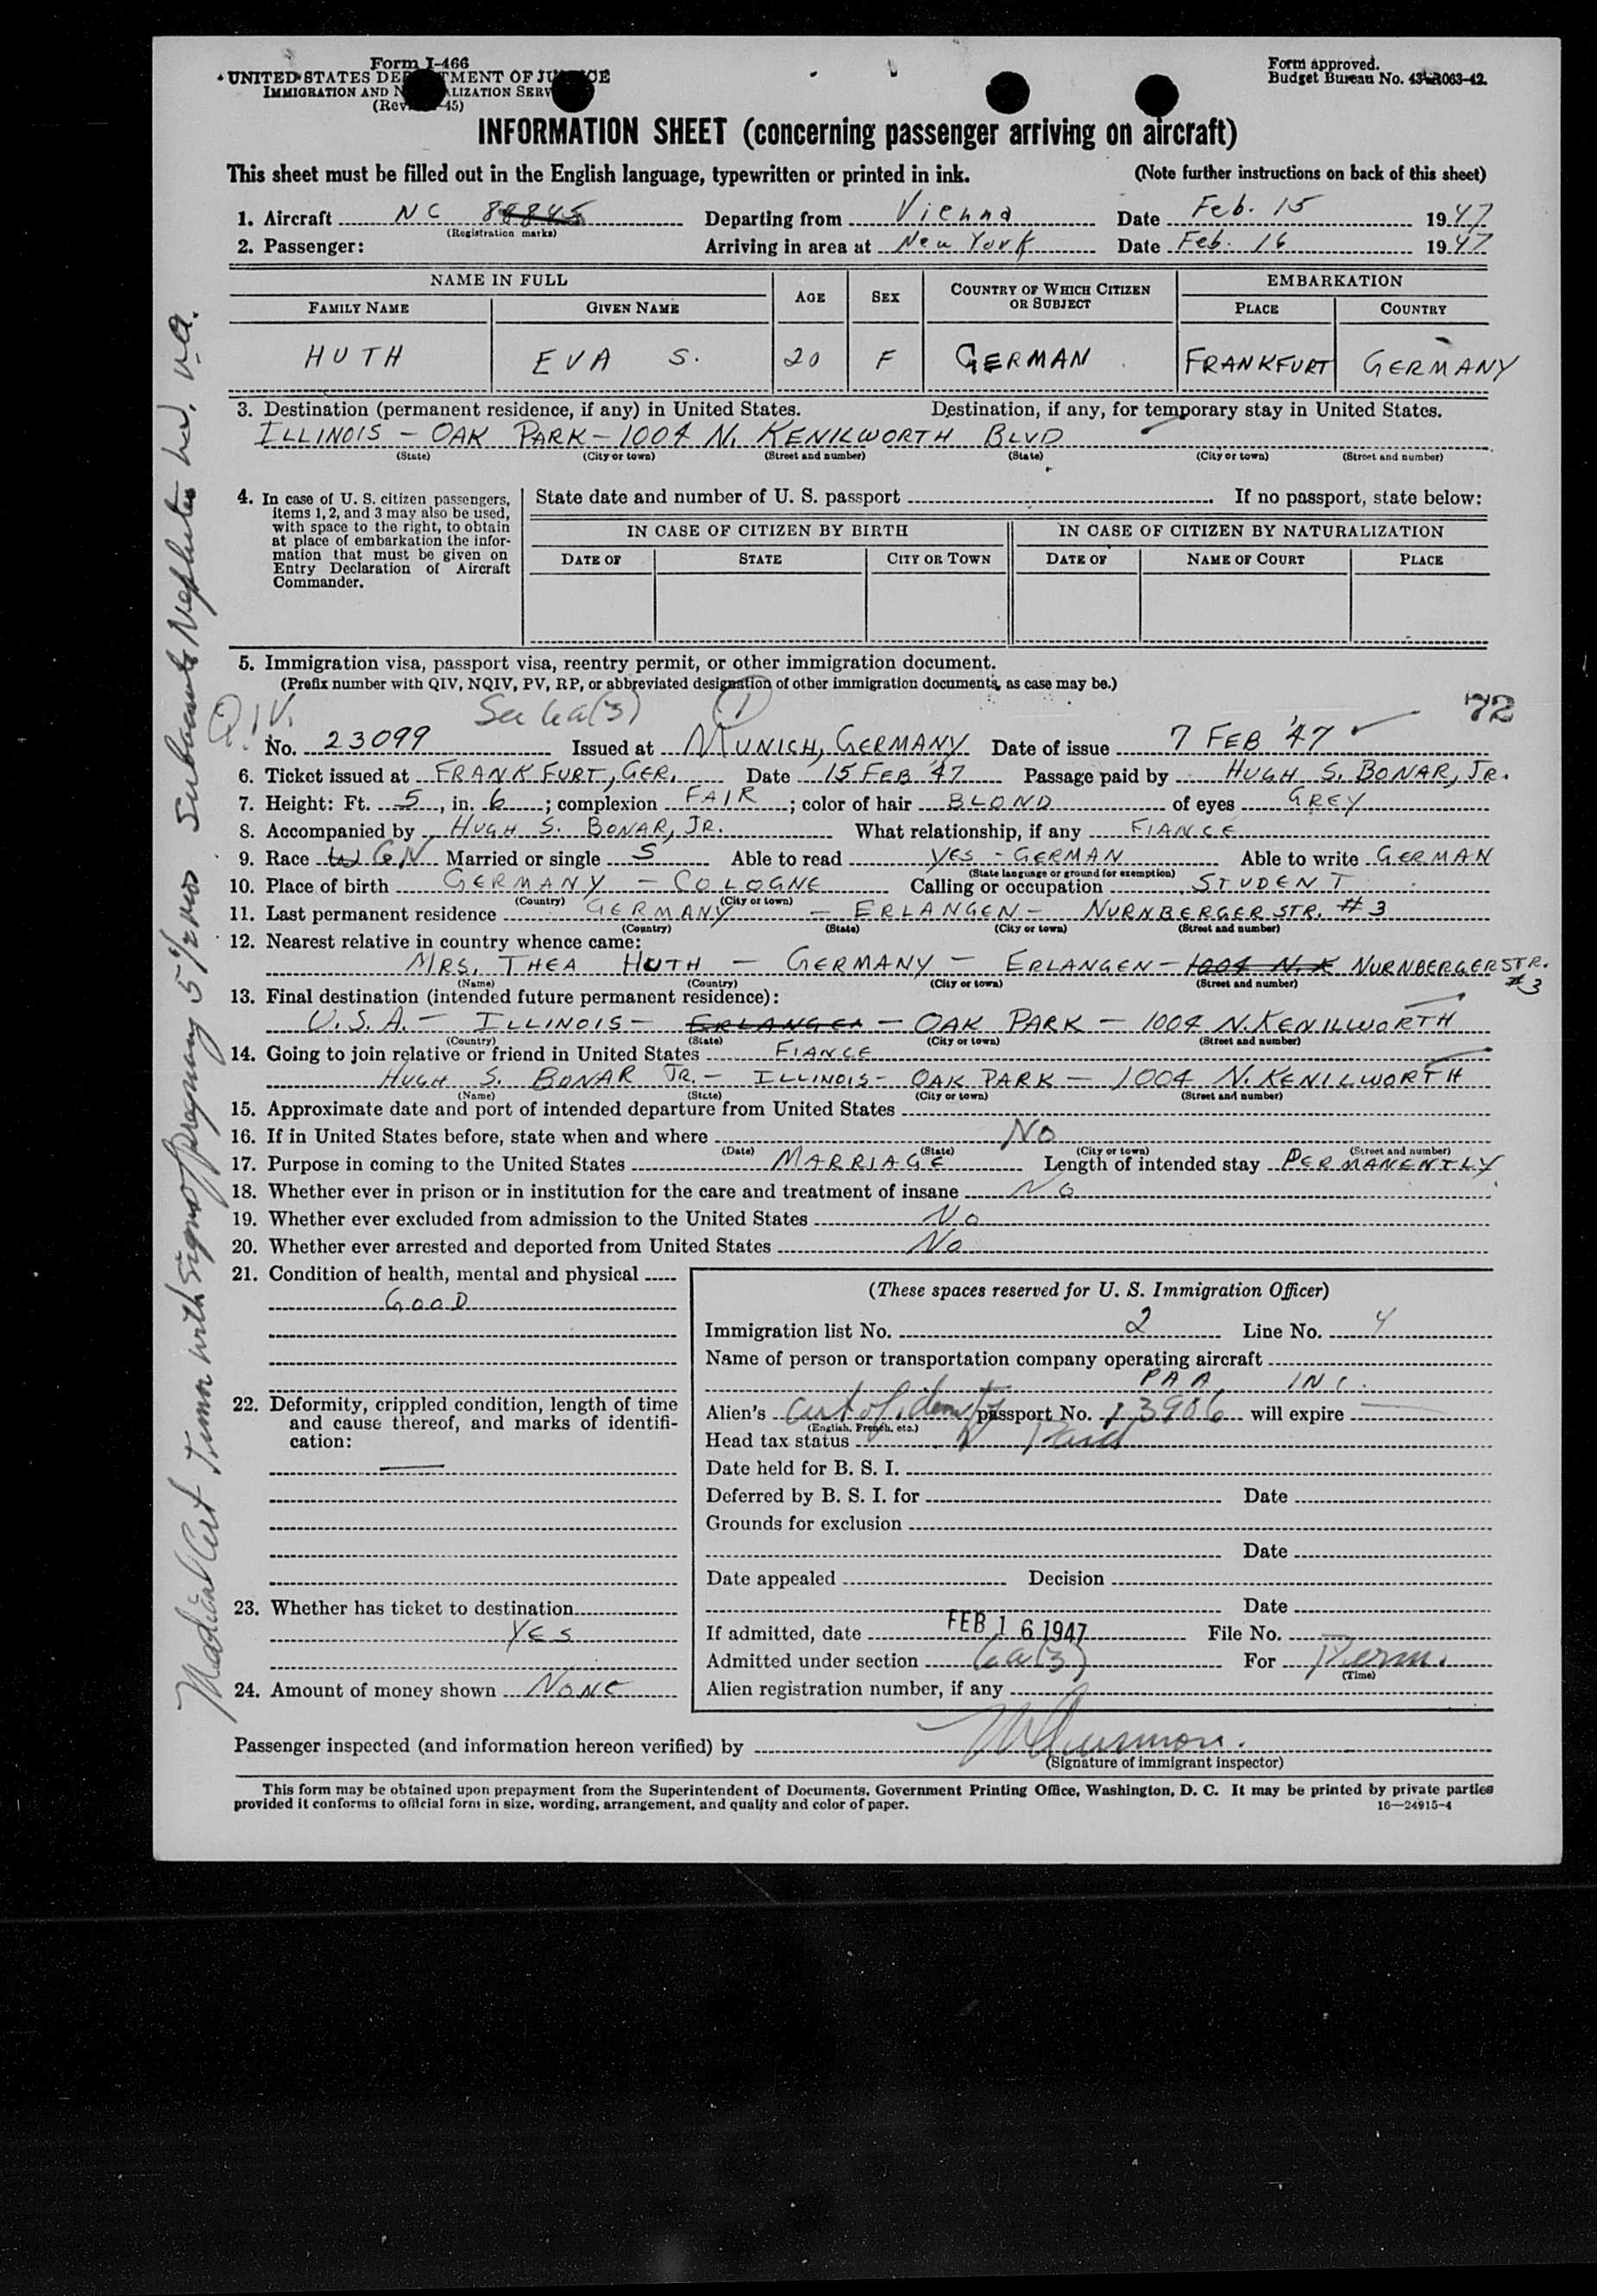 Form I-466
UNITED STATES DEPARTMENT OF JUSTICE
IMMIGRATION AND NATURALIZATION SERVICE
(Rev. 45)
Form approved.
Budget Bureau No. 43-R063-42.
INFORMATION SHEET (concerning passenger arriving on aircraft)
This sheet must be filled out in the English language, typewritten or printed in ink. (Note further instructions on back of this sheet)
1. Aircraft NC 88845 Departing from Vienna Date Feb. 15 1947
(Registration marks)
2. Passenger: Arriving in area at New York Date Feb. 16 1947
NAME IN FULL AGE SEX COUNTRY OF WHICH CITIZEN OR SUBJECT EMBARKATION
FAMILY NAME GIVEN NAME PLACE COUNTRY
HUTH EVA S. 20 F GERMAN FRANKFURT GERMANY
3. Destination (permanent residence, if any) in United States. Destination, if any, for temporary stay in United States.
ILLINOIS - OAK PARK - 1004 N. KENILWORTH BLVD
(State) (City or town) (Street and number) (State) (City or town) (Street and number)
4. In case of U. S. citizen passengers, items 1, 2, and 3 may also be used, with space to the right, to obtain at place of embarkation the information that must be given on Entry Declaration of Aircraft Commander.
State date and number of U. S. passport If no passport, state below:
IN CASE OF CITIZEN BY BIRTH IN CASE OF CITIZEN BY NATURALIZATION
DATE OF STATE CITY OR TOWN DATE OF NAME OF COURT PLACE
5. Immigration visa, passport visa, reentry permit, or other immigration document.
(Prefix number with QIV, NQIV, PV, RP, or abbreviated designation of other immigration documents, as case may be.)
Q.I.V. Sec 6a(3) (1) 72
No. 23099 Issued at MUNICH, GERMANY Date of issue 7 FEB '47
6. Ticket issued at FRANKFURT, GER. Date 15 FEB '47 Passage paid by HUGH S. BONAR, JR.
7. Height: Ft. 5, in. 6; complexion FAIR; color of hair BLOND of eyes GREY
8. Accompanied by HUGH S. BONAR, JR. What relationship, if any FIANCE
9. Race W GN Married or single S Able to read YES - GERMAN Able to write GERMAN
(State language or ground for exemption)
10. Place of birth GERMANY - COLOGNE Calling or occupation STUDENT
(Country) (City or town)
11. Last permanent residence GERMANY - ERLANGEN - NURNBERGER STR. #3
(Country) (State) (City or town) (Street and number)
12. Nearest relative in country whence came:
MRS. THEA HUTH - GERMANY - ERLANGEN - 1004 N. K NURNBERGERSTR. #3
(Name) (Country) (City or town) (Street and number)
13. Final destination (intended future permanent residence):
U.S.A. - ILLINOIS - ERLANGEN - OAK PARK - 1004 N. KENILWORTH
(Country) (State) (City or town) (Street and number)
14. Going to join relative or friend in United States FIANCE
HUGH S. BONAR JR. - ILLINOIS - OAK PARK - 1004 N. KENILWORTH
(Name) (State) (City or town) (Street and number)
15. Approximate date and port of intended departure from United States
16. If in United States before, state when and where NO
(Date) (State) (City or town) (Street and number)
17. Purpose in coming to the United States MARRIAGE Length of intended stay PERMANENTLY
18. Whether ever in prison or in institution for the care and treatment of insane NO
19. Whether ever excluded from admission to the United States NO
20. Whether ever arrested and deported from United States NO
21. Condition of health, mental and physical
GOOD
22. Deformity, crippled condition, length of time and cause thereof, and marks of identification:
—
23. Whether has ticket to destination
YES
24. Amount of money shown NONE
(These spaces reserved for U. S. Immigration Officer)
Immigration list No. 2 Line No. 4
Name of person or transportation company operating aircraft
PAA INC.
Alien's cert of identity passport No. 13906 will expire —
(English, French, etc.)
Head tax status Paid
Date held for B. S. I.
Deferred by B. S. I. for Date
Grounds for exclusion
Date
Date appealed Decision
Date
If admitted, date FEB 16 1947 File No.
Admitted under section 6a(3) For Perm.
(Time)
Alien registration number, if any
Passenger inspected (and information hereon verified) by
(Signature of immigrant inspector)
This form may be obtained upon prepayment from the Superintendent of Documents, Government Printing Office, Washington, D. C. It may be printed by private parties
provided it conforms to official form in size, wording, arrangement, and quality and color of paper. 16—24915-4
Medical Cert with signs of pregnancy 5 1/2 mos